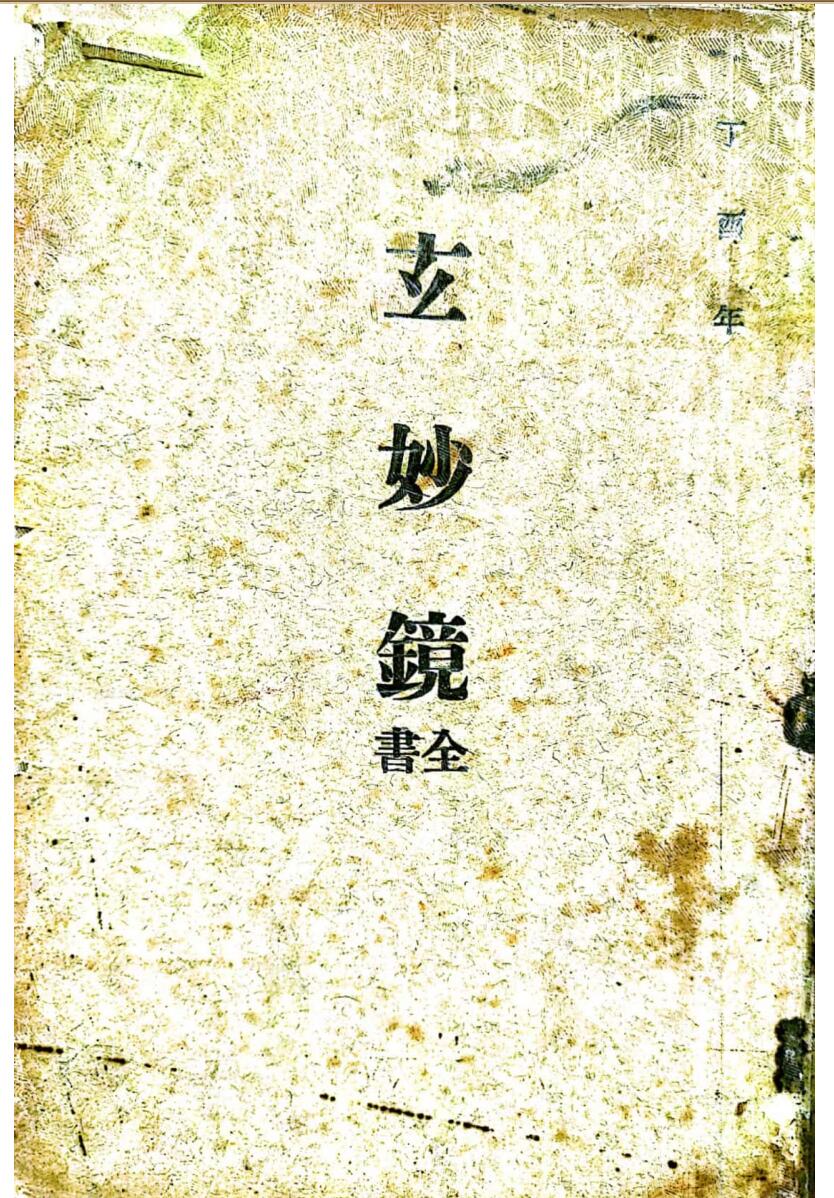 丁酉年
玄妙鏡
全書